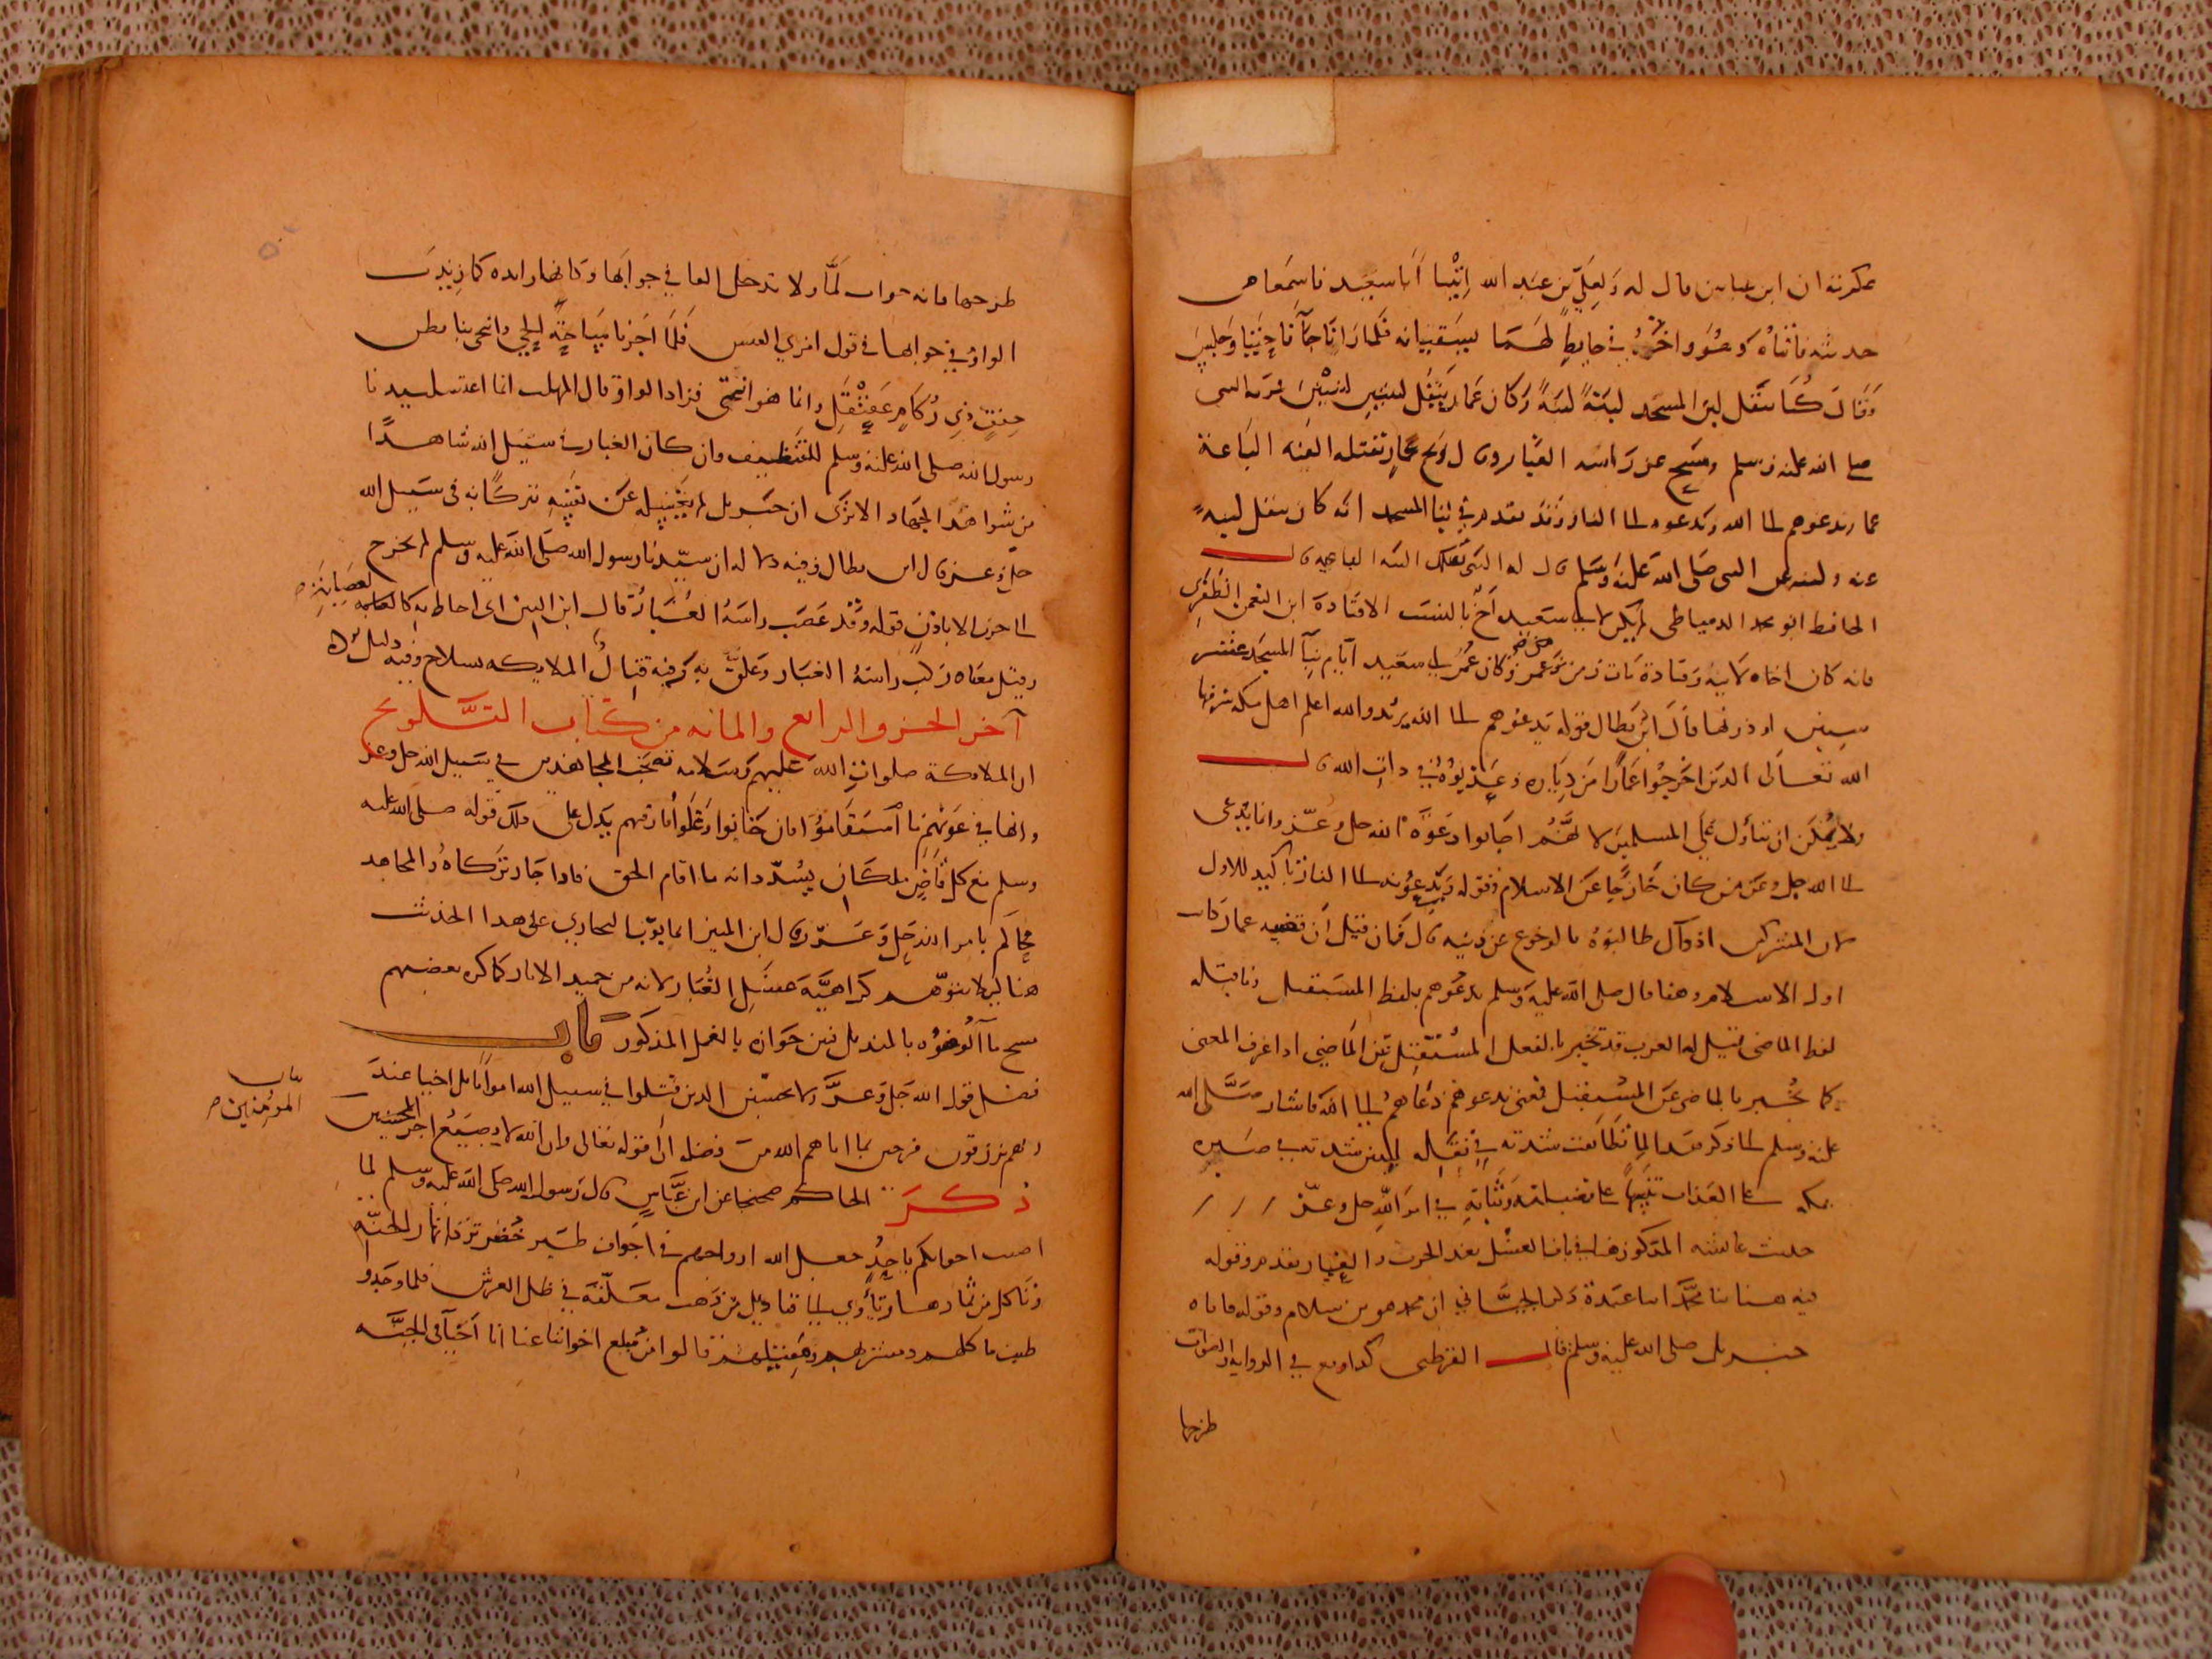 عكرمة ان ابن عباس قال له ولعلي بن عبد الله ائتيا ابا سعيد فاسمعا من
حديثه فاتيناه وهو واخوه في حايط لهما يسقيانه فلما رانا جآنا جتبا وجلس
وقال كنا ننقل لبن المسجد لبنة لبنة وكان عمار ينقل لبنتين لبنتين فمر به النبي
صلى الله عليه وسلم ومسح عن راسه الغبار وقال ويح عمار تقتله الفئة الباغية
عمار يدعوهم الى الله ويدعونه الى النار وقد تقدم في بنا المسجد انه كان ينقل لبنة
عنه ولبنة عن النبي صلى الله عليه وسلم قال له النبي تقتلك الفئة الباغية قال
الحافظ ابو محمد الدمياطي لم يكن لابي سعيد اخ بالنسب الا قتادة ابن النعمن الظفري
فانه كان اخاه لامه وقتادة مات زمن عمر وكان عمر ابي سعيد ايام بنآ المسجد عشر
سنين او دونها قال ابن بطال قوله يدعوهم الى الله يريد والله اعلم اهل مكة شرفها
الله تعالى الذين اخرجوا عمارا من دياره وعذبوه في ذات الله قال
ولا يمكن ان يتأول على المسلمين لانهم اجابوا دعوة الله جل وعز وانما يدعى
الى الله جل وعز من كان خارجا عن الاسلام وقوله ويدعونه الى النار تاكيد للاول
لان المشركين اذ ذآك طالبوه بالرجوع عن دينه قال فان قيل ان قصة عمار كانت
اول الاسلام وهنا قال صلى الله عليه وسلم يدعوهم بلفظ المستقبل وما قبله
لفظ الماضي قيل له العرب قد تخبر بالفعل المستقبل عن الماضي اذا عرف المعنى
كما تخبر بالماضي عن المستقبل فمعنى يدعوهم دعاهم الى الله فاشار صلى الله
عليه وسلم الى ذكر هذا لما تطابقت شدته في نقله لبنتين شدته في صبره
بمكة على العذاب تنبيها على فضيلته وثباته في امر الله جل وعز
حديث عائشة المذكور هنا في باب الغسل بعد الحرب والغبار تقدم وقوله
فيه هنا ثنا محمد انبا عبدة ذكر الجياني ان محمد هو بن سلام وقوله فاتاه
جبريل صلى الله عليه وسلم قال القرطبي كذا وقع في الرواية والصواب
طرحها
طرحها فانه جواب لما ولا تدخل الفا في جوابها وكانها زايدة كما زيدت
الواو في جوابها في قول امري القيس فلما اجزنا ساحة الحي وانتحى بنا بطن
حقف ذي ركام عقنقل وانما هو انتحى فزاد الواو قال المهلب انما اغتسل سيدنا
رسول الله صلى الله عليه وسلم للتنظيف وان كان الغبار في سبيل الله شاهدا
من شواهد الجهاد الا ترى ان جبريل لم يغسله عن نفسه تبركا به في سبيل الله
جل وعز قال ابن بطال وفيه دلالة ان سيدنا رسول الله صلى الله عليه وسلم لم يخرج
الى حرب الا باذن قوله وقد عصب راسه الغبار قال ابن التين اي احاط به كالعصابة
وقيل معناه ركب راسه الغبار وعلق به وفيه قتال الملايكة بسلاح وفيه دليل على
آخر الجزو الرابع والمائه من كتاب التلويح
ان الملايكة صلوات الله عليهم وسلامه تصحب المجاهدين في سبيل الله جل وعز
وانها في عونهم ما استقاموا فان خانوا وغلوا فارقتهم يدل على ذلك قوله صلى الله عليه
وسلم مع كل قاض ملكان يسددانه ما اقام الحق فاذا جار تركاه والمجاهد
حاكم بامر الله جل وعز وقال ابن المنير انما بوب البخاري على هذا الحديث
هنا ليلا يتوهم كراهية غسل الغبار لانه من حميد الاثار كما كره بعضهم
مسح مآ الوضوء بالمنديل فبين جوازه بالفعل المذكور باب
فضل قول الله جل وعز ولا تحسبن الذين قتلوا في سبيل الله امواتا بل احيا عند
ربهم يرزقون فرحين بما اتاهم الله من فضله الى قوله تعالى وان الله لا يضيع اجر المحسنين
باب المؤمنين
ذكر الحاكم صحيحا عن ابن عباس قال رسول الله صلى الله عليه وسلم لما
اصيب اخوانكم باحد جعل الله ارواحهم في اجواف طير خضر ترد انهار الجنة
وتاكل من ثمارها وتأوي الى قناديل من ذهب معلقة في ظل العرش فلما وجدوا
طيب ماكلهم ومشربهم ومقيلهم قالوا من يبلغ اخواننا عنا انا احيآ في الجنة